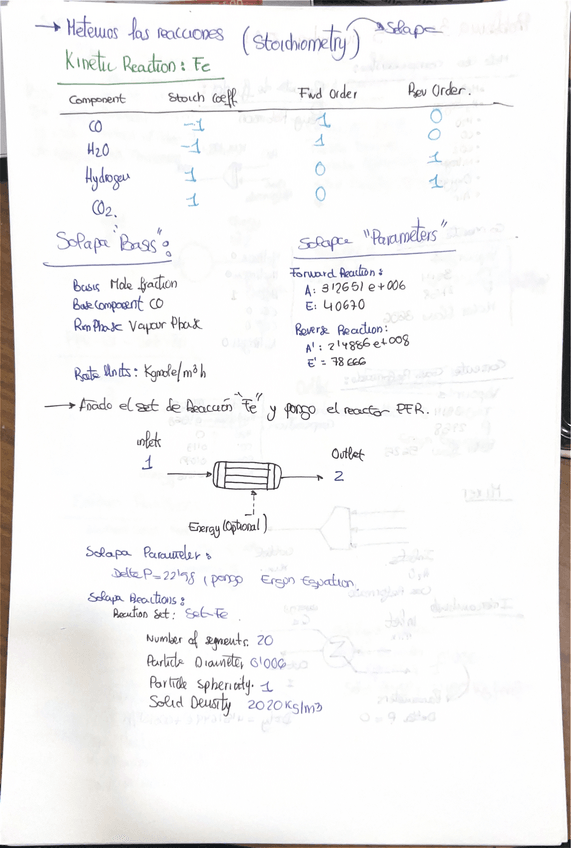 → Metemos las reacciones (Stoichiometry) → Solapa
Kinetic Reaction: Fe
Component Stoich Coeff. Fwd Order Rev Order.
CO -1 1 0
H2O -1 1 0
Hydrogen 1 0 1
CO2. 1 0 1
Solapa "Basis":
Basis Mole fraction
Base Component CO
Rxn Phase Vapour Phase
Rate Units: Kgmole/m³h
Solapa "Parameters"
Forward Reaction:
A: 3'2651 e+006
E: 40670
Reverse Reaction:
A': 2'4886 e+008
E' = 78666
→ Añado el set de Reacción "Fe" y pongo el reactor PFR.
Inlets
1
Outlet
2
Energy (Optional)
Solapa Parameter:
Delta P = 22'98, pongo Ergun Equation
Solapa Reactions:
Reaction Set: Set-Fe.
Number of segments: 20
Particle Diameter 0'006
Particle Sphericity. 1
Solid Density 2020 Kg/m3